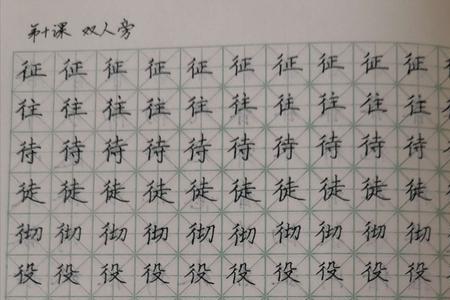 第十课 双人旁
征征征征征征征征征征
往往往往往往往往往往
待待待待待待待待待待
徒徒徒徒徒徒徒徒徒徒
彻彻彻彻彻彻彻彻彻彻
役役役役役役役役役役